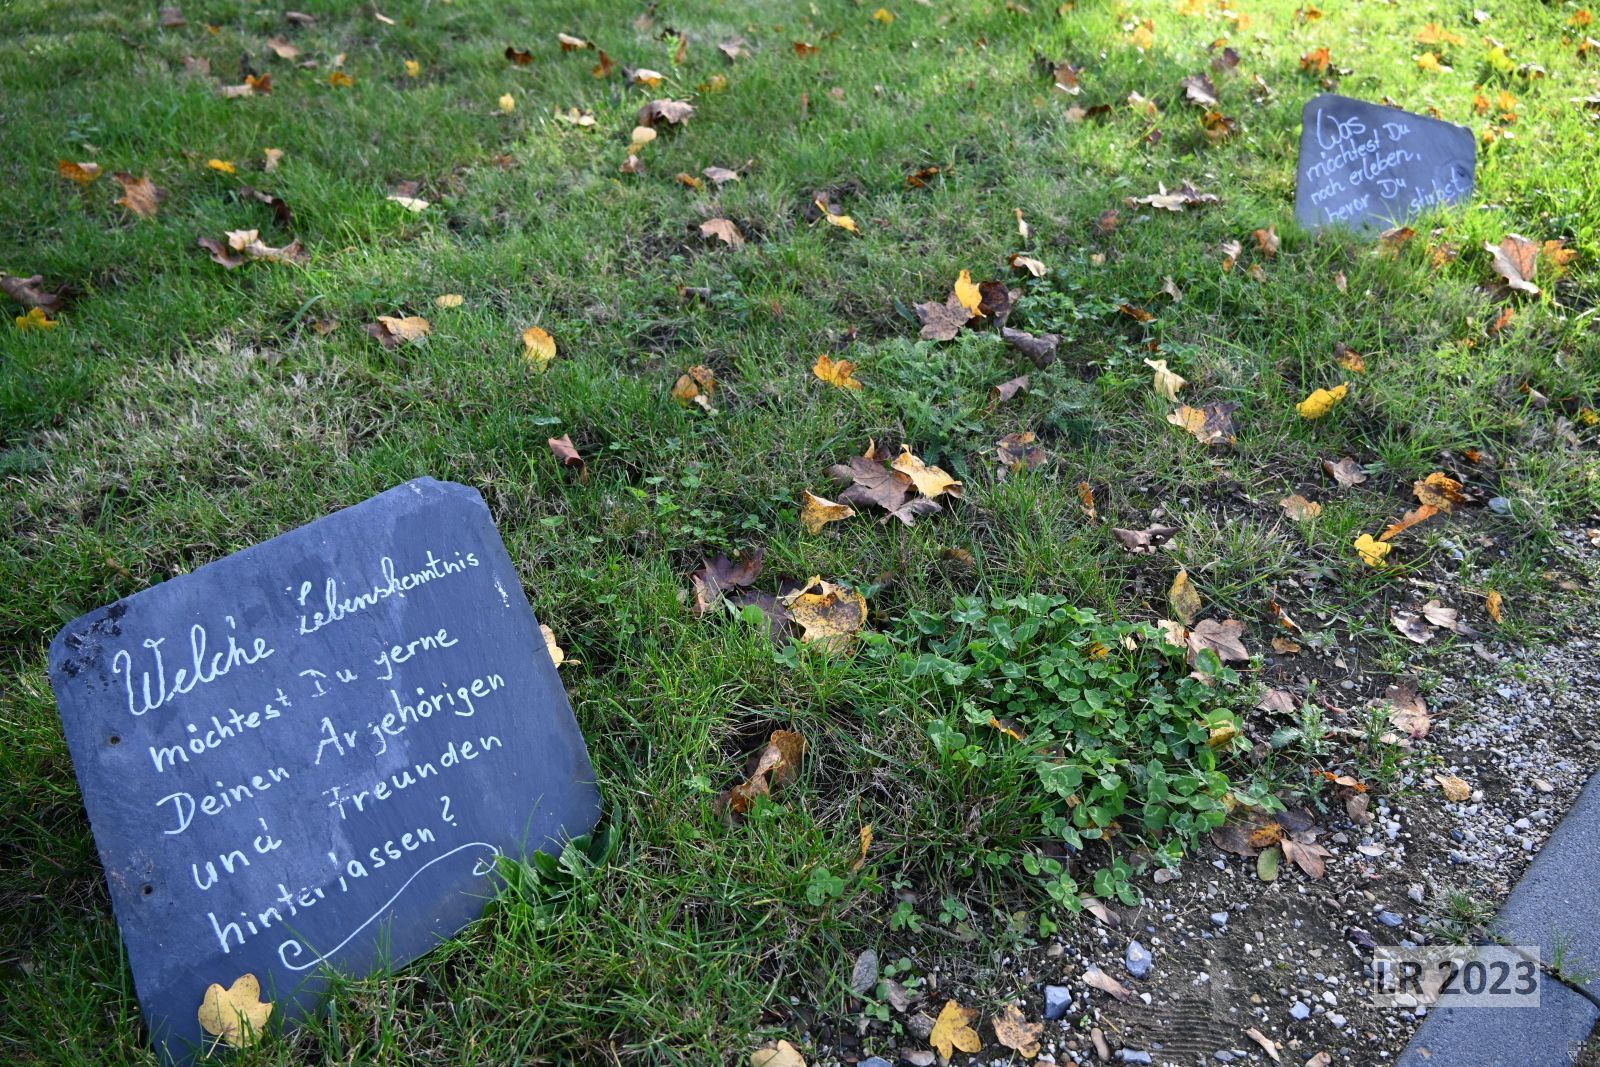 Welche Lebenskenntnis
möchtest Du gerne
Deinen Angehörigen
und Freunden
hinterlassen?
Was
möchtest Du
noch erleben,
bevor Du stirbst
I.R 2023